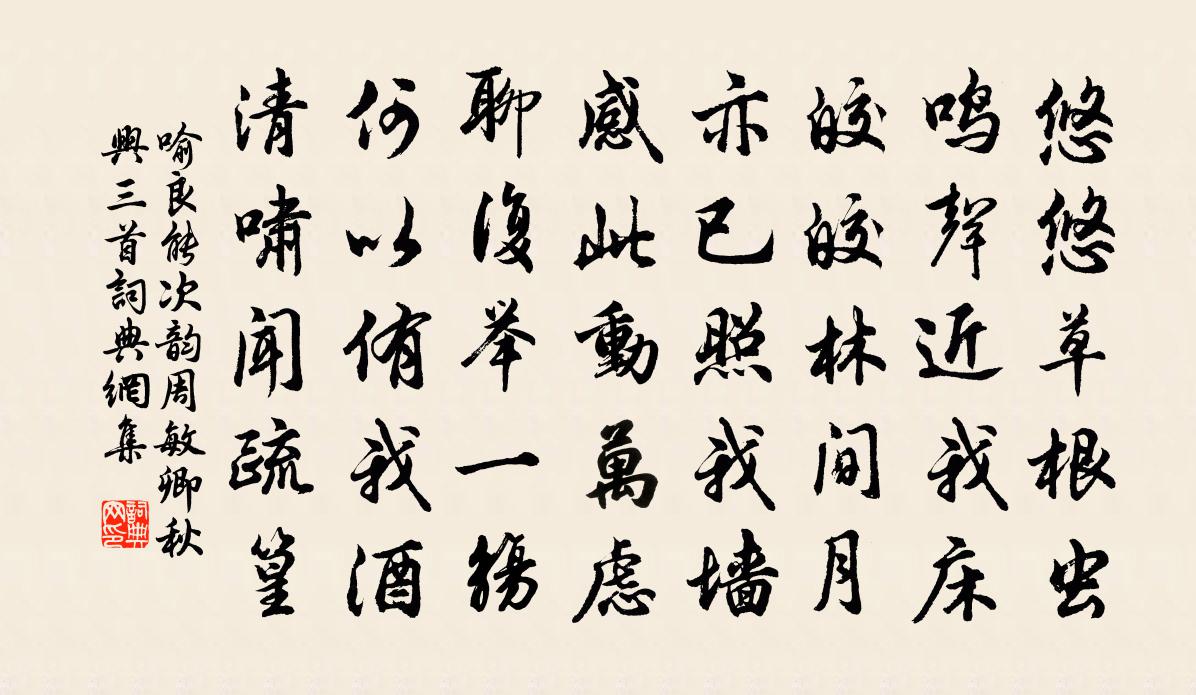 悠悠草根虫
鸣聲近我床
皎皎林间月
亦已照我墙
感此動萬慮
聊復举一觴
何以侑我酒
清啸闻疏篁
喻良能次韵周敏卿秋
興三首詞典網集
詞典网印